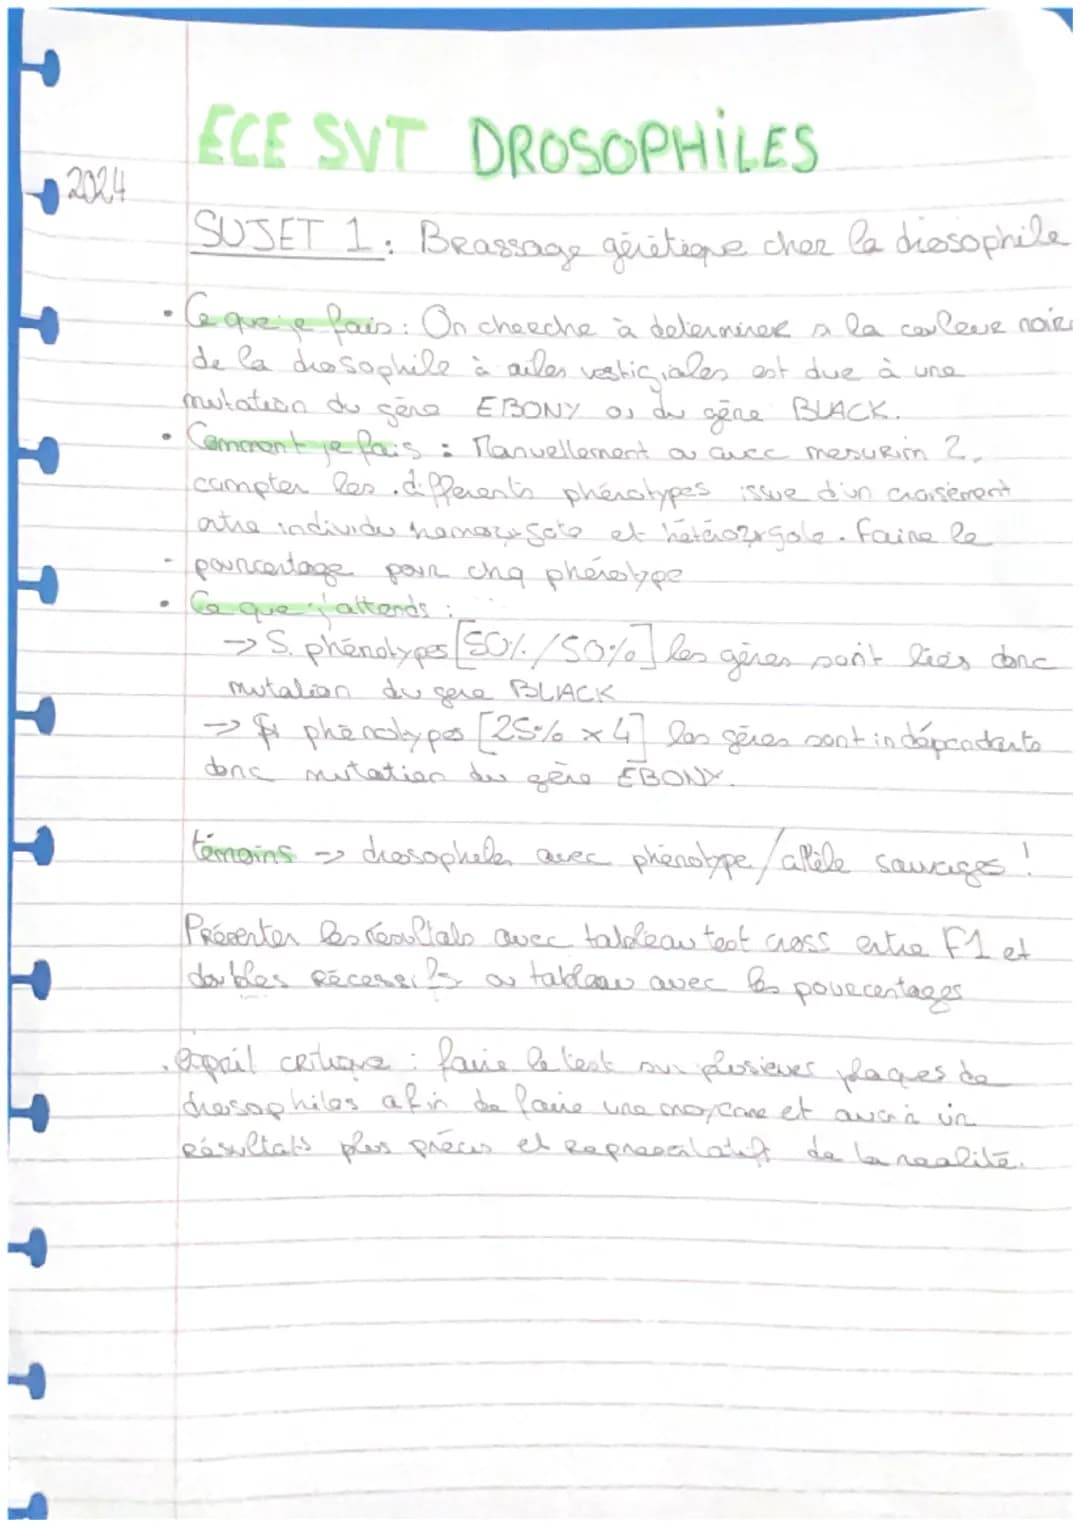 ECE SVT DROSOPHILES
2024
SUJET 1 : Brassage génétique chez la drosophile
• Ce que je fais : On cherche à determiner si la couleur noire
de la drosophile à ailes vestigiales est due à une
mutation du gène EBONY ou du gène BLACK.
• Comment je fais : Manuellement ou avec mesurim 2,
compter les différents phénotypes issue d'un croisement
entre individu homozygote et hétérozygote. Faire le
- pourcentage pour chq phénotype
• Ce que j'attends :
→ Si phénotypes [50% / 50%] les gènes sont liés donc
mutation du gène BLACK
→ Si phénotypes [25% x 4] les gènes sont indépendants
donc mutation du gène EBONY.
témoins → drosophiles avec phénotype/allèle sauvages !
Présenter les résultats avec tableau test cross entre F1 et
doubles récessifs ou tableau avec les pourcentages
. esprit critique : faire le test sur plusieurs plaques de
drosophiles afin de faire une moyenne et avoir un
résultats plus précis et représentatifs de la réalité.